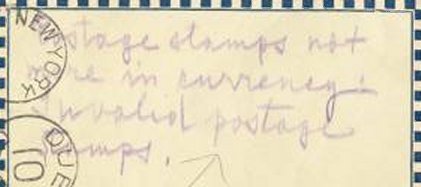 NEW YORK
Postage stamps not
more in currency:
Invalid postage
stamps.
DUE
10